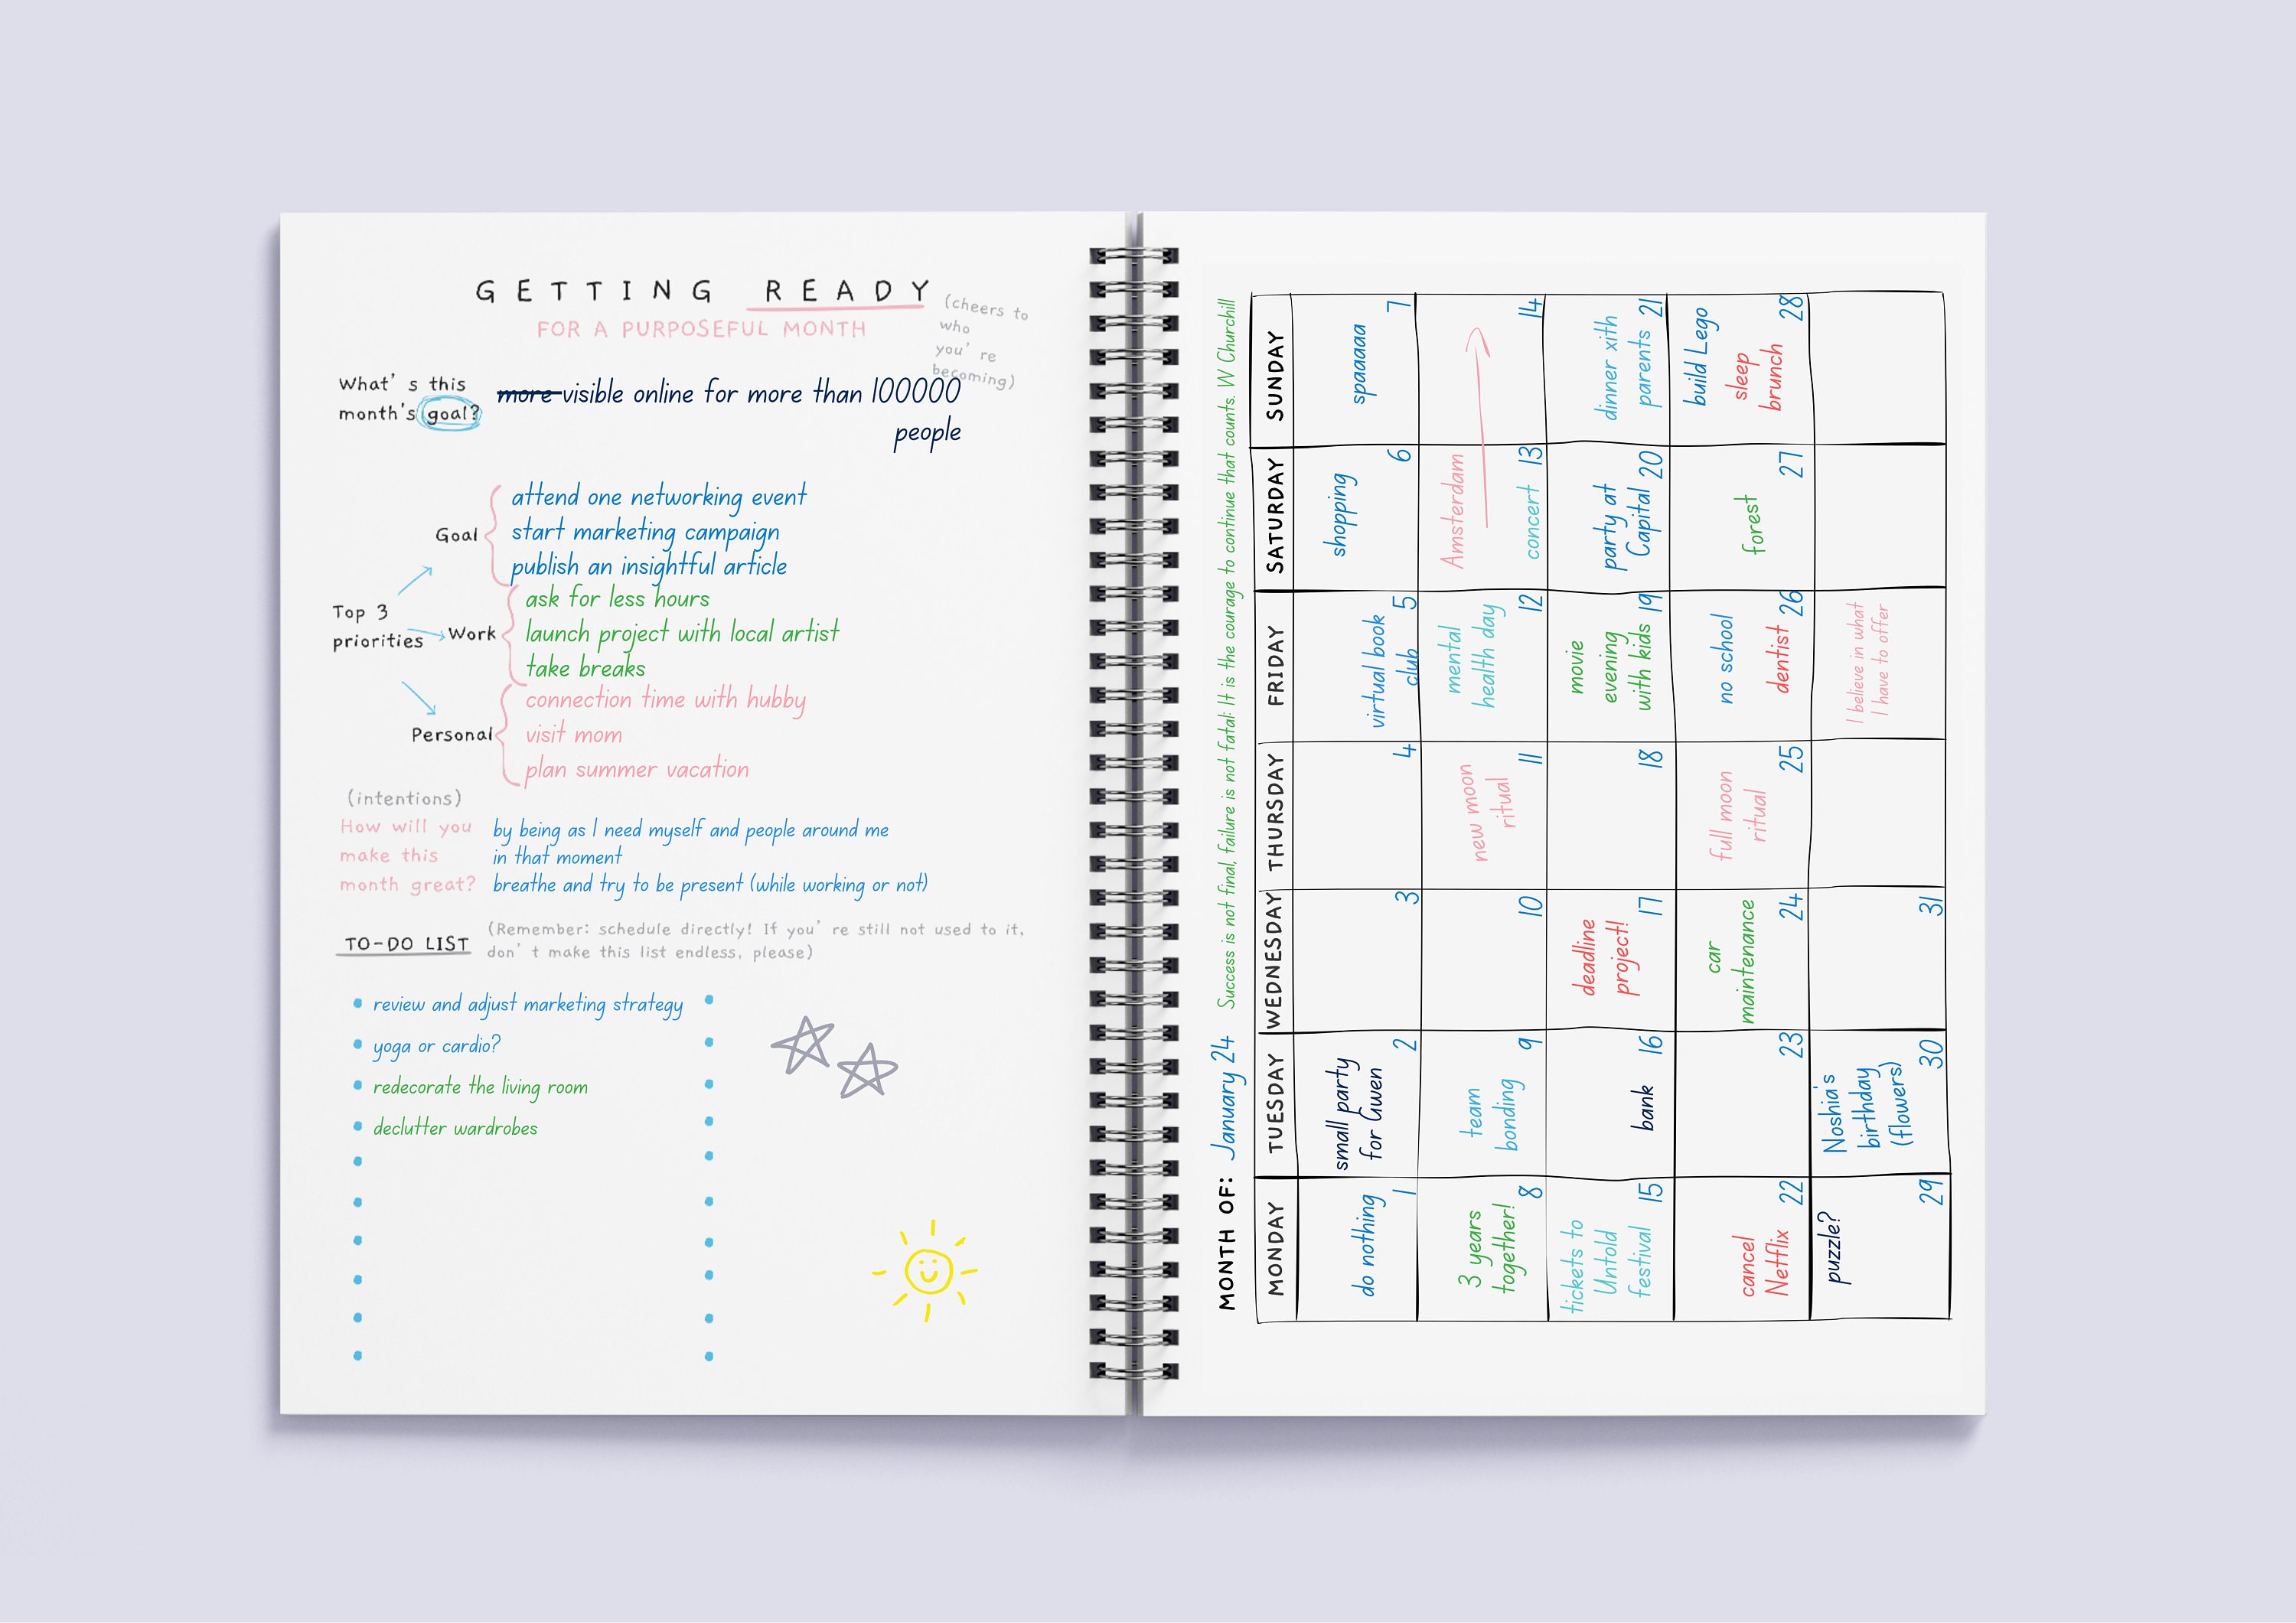 GETTING READY
FOR A PURPOSEFUL MONTH
(cheers to
who
you're
becoming)
What's this
month's goal?
more visible online for more than 100000
people
Top 3
priorities
Goal
attend one networking event
start marketing campaign
publish an insightful article
Work
ask for less hours
launch project with local artist
take breaks
Personal
connection time with hubby
visit mom
plan summer vacation
(intentions)
How will you
make this
month great?
by being as I need myself and people around me
in that moment
breathe and try to be present (while working or not)
TO-DO LIST
(Remember: schedule directly! If you're still not used to it,
don't make this list endless, please)
review and adjust marketing strategy
yoga or cardio?
redecorate the living room
declutter wardrobes
MONTH OF: January 24
Success is not final, failure is not fatal: It is the courage to continue that counts. W Churchill
MONDAY TUESDAY WEDNESDAY THURSDAY FRIDAY SATURDAY SUNDAY
1
do nothing
2
small party
for Gwen
3
4
5
virtual book
club
6
shopping
7
spaaaaa
8
3 years
together!
9
team
bonding
10
11
new moon
ritual
12
mental
health day
13
Amsterdam
concert
14
15
tickets to
Untold
festival
16
bank
17
deadline
project!
18
19
movie
evening
with kids
20
party at
Capital
21
dinner xith
parents
22
cancel
Netflix
23
24
car
maintenance
25
full moon
ritual
26
no school
dentist
27
forest
28
build Lego
sleep
brunch
29
puzzle?
30
Noshia's
birthday
(flowers)
31
I believe in what
I have to offer